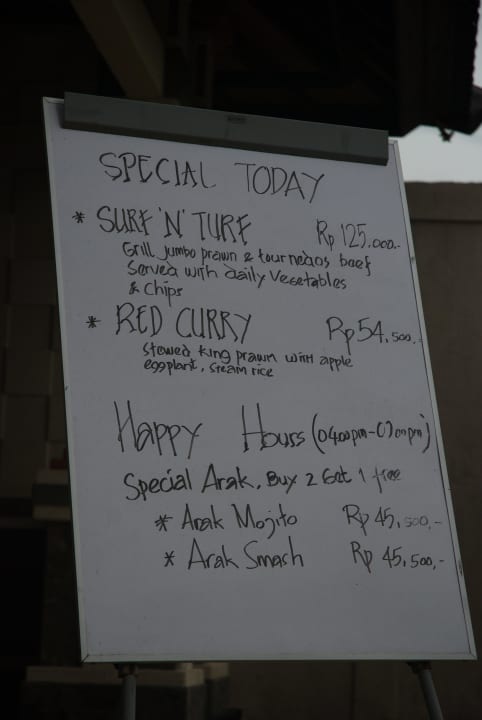 SPECIAL TODAY
* SURF 'N' TURF Rp 125.000.-
Grill jumbo prawn & tournedos beef
Served with daily Vegetables
& Chips
* RED CURRY Rp 54,500.-
Stewed king prawn with apple
eggplant, steam rice
Happy Hours (04.00pm-07.00pm)
Special Arak, Buy 2 Get 1 free
* Arak Mojito Rp 45,500,-
* Arak Smash Rp 45,500,-